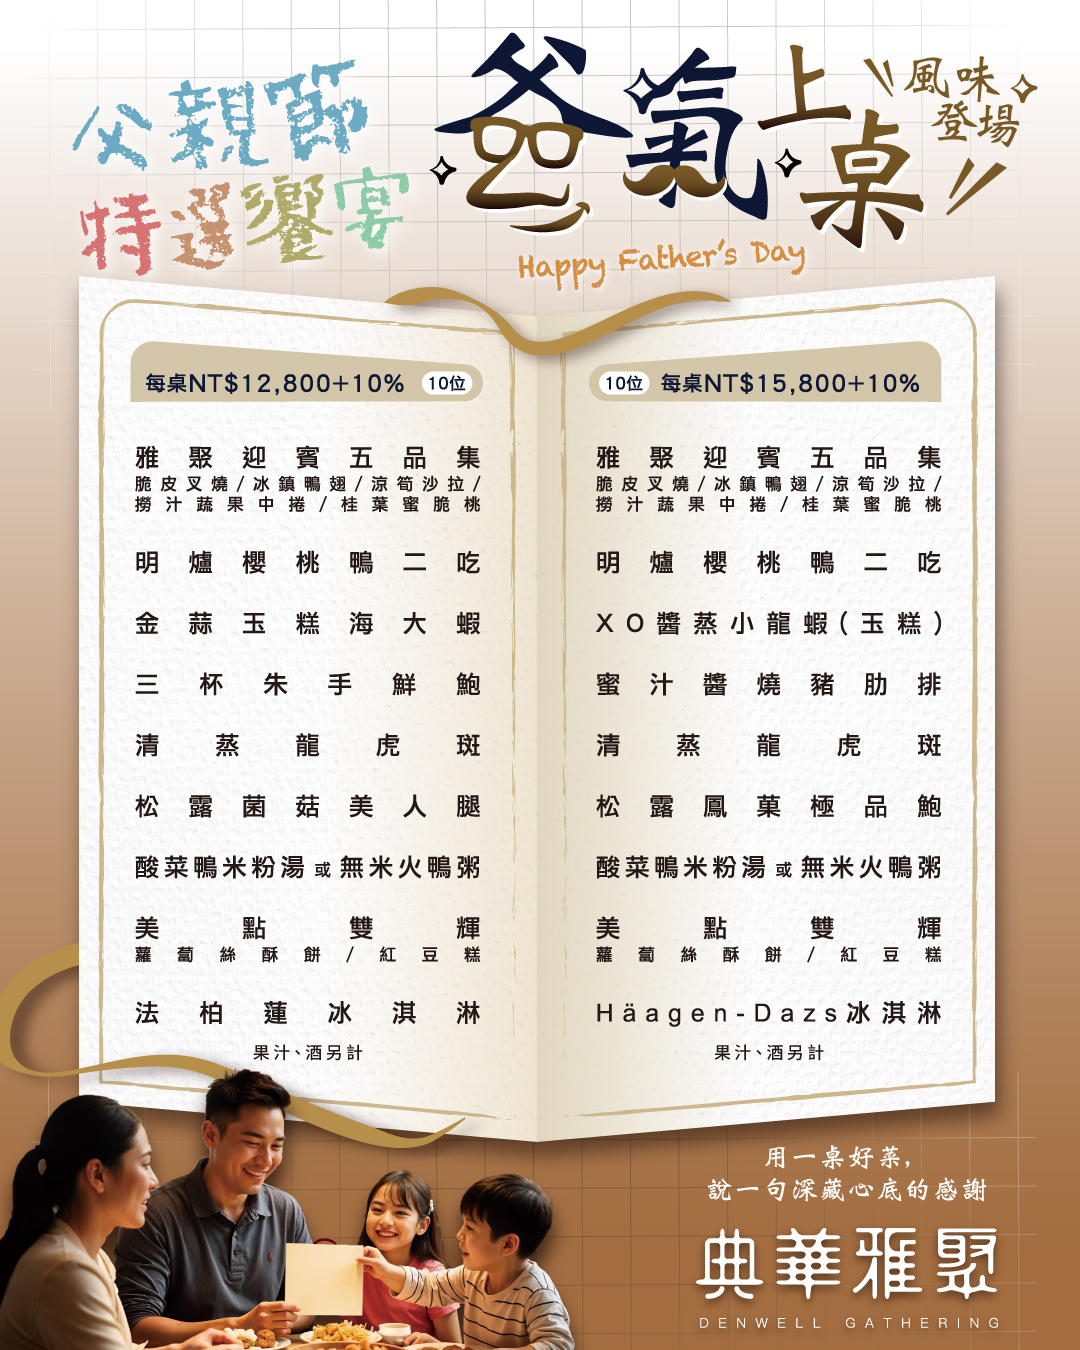 父親節
特選饗宴
爸氣上桌
風味
登場
Happy Father's Day
每桌NT$12,800+10% 10位
雅聚迎賓五品集
脆皮叉燒/冰鎮鴨翅/涼筍沙拉/
撈汁蔬果中捲/桂葉蜜脆桃
明爐櫻桃鴨二吃
金蒜玉糕海大蝦
三杯朱手鮮鮑
清蒸龍虎斑
松露菌菇美人腿
酸菜鴨米粉湯或無米火鴨粥
美點雙輝
蘿蔔絲酥餅/紅豆糕
法柏蓮冰淇淋
果汁、酒另計
10位 每桌NT$15,800+10%
雅聚迎賓五品集
脆皮叉燒/冰鎮鴨翅/涼筍沙拉/
撈汁蔬果中捲/桂葉蜜脆桃
明爐櫻桃鴨二吃
XO醬蒸小龍蝦(玉糕)
蜜汁醬燒豬肋排
清蒸龍虎斑
松露鳳菓極品鮑
酸菜鴨米粉湯或無米火鴨粥
美點雙輝
蘿蔔絲酥餅/紅豆糕
Häagen-Dazs冰淇淋
果汁、酒另計
用一桌好菜,
說一句深藏心底的感謝
典華雅聚
DENWELL GATHERING